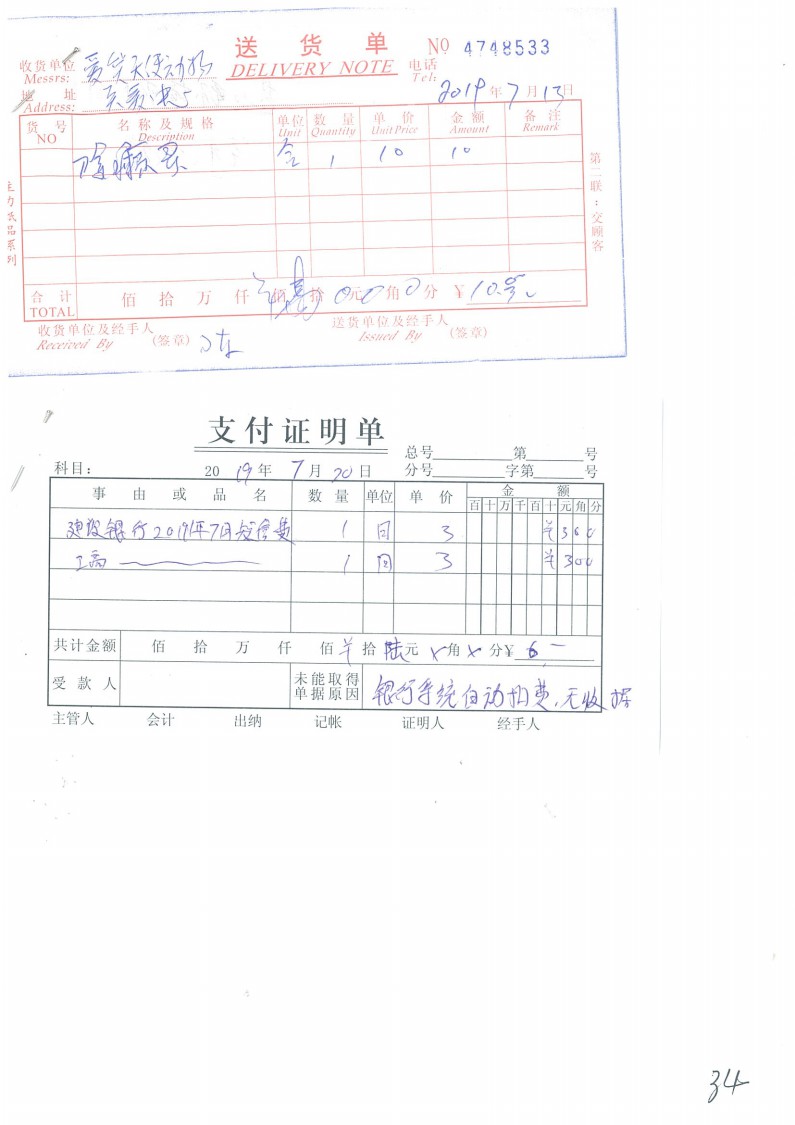 送 货 单 NO 4748533
DELIVERY NOTE
收货单位
Messrs:
电话
Tel:
地 址
Address:
2019年7月13日
货 号 名 称 及 规 格 单位 数 量 单 价 金 额 备 注
NO Description Unit Quantity Unit Price Amount Remark
1 10 10
第二联：交顾客
合 计 佰 拾 万 仟 佰 拾 0元0角0分 ￥10.
TOTAL
收货单位及经手人 (签章)
Received By
送货单位及经手人 (签章)
Issued By
支付证明单
总号 第 号
科目: 2019年7月20日 分号 字第 号
事 由 或 品 名 数 量 单位 单 价 金 额
百十万千百十元角分
建设银行2019年7月短信费 1 3 ￥300
工商 1 3 ￥300
共计金额 佰 拾 万 仟 佰 拾 陆元 角 分￥ 6.-
受 款 人
未能取得
单据原因
银行系统自动扣费,无收据
主管人 会计 出纳 记帐 证明人 经手人
34